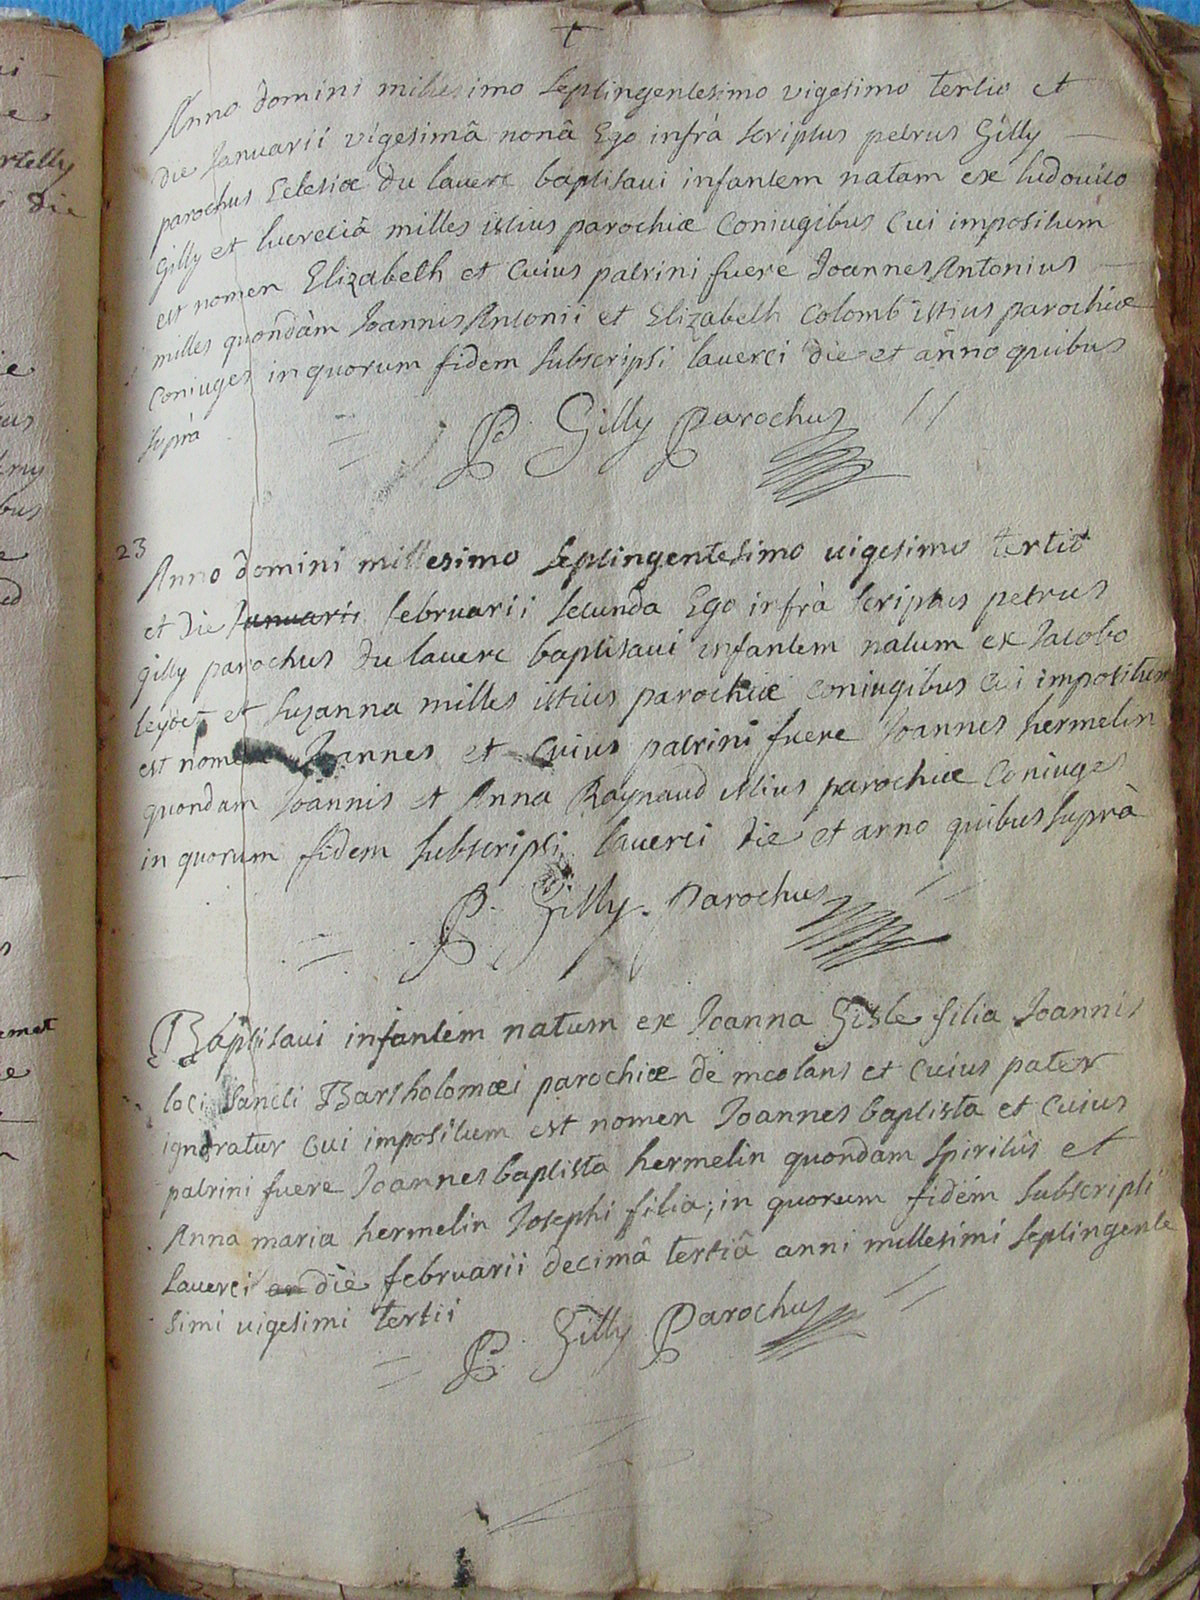 +
Anno domini millesimo septingentesimo vigesimo tertio et
die Januarii vigesimâ nonâ Ego infrà scriptus petrus Gilly
parochus Eclesiæ du laverc baptisavi infantem natam ex ludovico
gilly et lucreciâ milles istius parochiæ Coniugibus Cui impositum
est nomen Elizabeth et Cuius patrini fuere Joannes Antonius
milles quondàm Joannis Antonii et Elizabeth Colomb istius parochiæ
Coniuges in quorum fidem subscripsi laverci die et anno quibus
suprà
P. Gilly Parochus
23
Anno domini millesimo septingentesimo vigesimo tertio
et die Januarii februarii secunda Ego infrà scriptus petrus
gilly parochus du laverc baptisavi infantem natum ex Jacobo
et suzanna milles istius parochiæ coniugibus Cui impositum
est nomen Joannes et Cuius patrini fuere Joannes hermelin
quondam Joannis et Anna Raynaud istius parochiæ Coniuges
in quorum fidem subscripsi laverci die et anno quibus suprà
P. Gilly. Parochus
Baptisavi infantem natum ex Joanna Gisle filia Joannis
loci Sancti Bartholomæi parochiæ de meolans et Cuius pater
ignoratur Cui impositum est nomen Joannes baptista et Cuius
patrini fuere Joannes baptista hermelin quondam Spiritûs et
Anna maria hermelin Josephi filia; in quorum fidem subscripsi
laverci an die februarii decimâ tertiâ anni millesimi septingente
simi vigesimi tertii
P. Gilly Parochus